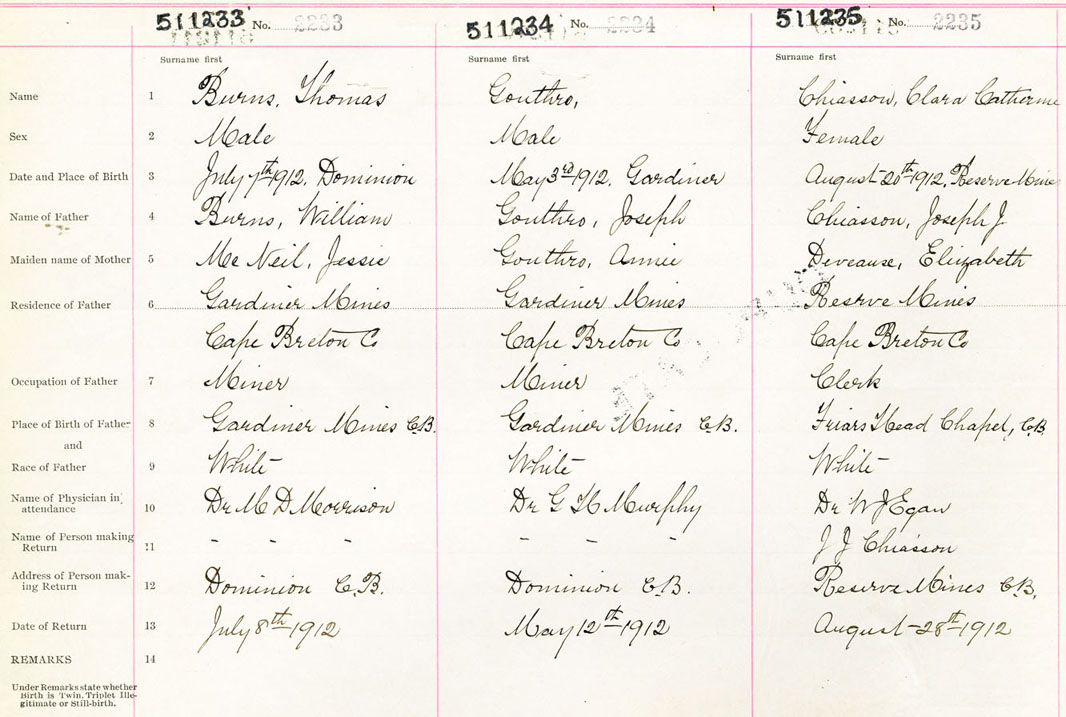 511233 No. 2233 511234 No. 2234 511235 No. 2235
Surname first Surname first Surname first
Name 1 Burns, Thomas Gouthro, Chiasson, Clara Catherine
Sex 2 Male Male Female
Date and Place of Birth 3 July 7th 1912, Dominion May 3rd 1912, Gardiner August 20th 1912, Reserve Mines
Name of Father 4 Burns, William Gouthro, Joseph Chiasson, Joseph J.
Maiden name of Mother 5 Mc Neil, Jessie Gouthro, Annie Deveause, Elizabeth
Residence of Father 6 Gardiner Mines Gardiner Mines Reserve Mines
Cape Breton Co Cape Breton Co Cape Breton Co
Occupation of Father 7 Miner Miner Clerk
Place of Birth of Father 8 Gardiner Mines C.B. Gardiner Mines C.B. Friars Head Chapel, C.B.
and
Race of Father 9 White White White
Name of Physician in attendance 10 Dr M D Morrison Dr G H Murphy Dr W J Egan
Name of Person making Return 11 - - - - - - J J Chiasson
Address of Person making Return 12 Dominion C.B. Dominion C.B. Reserve Mines C.B.
Date of Return 13 July 8th 1912 May 12th 1912 August 28th 1912
REMARKS 14
Under Remarks state whether
Birth is Twin, Triplet Ille-
gitimate or Still-birth.